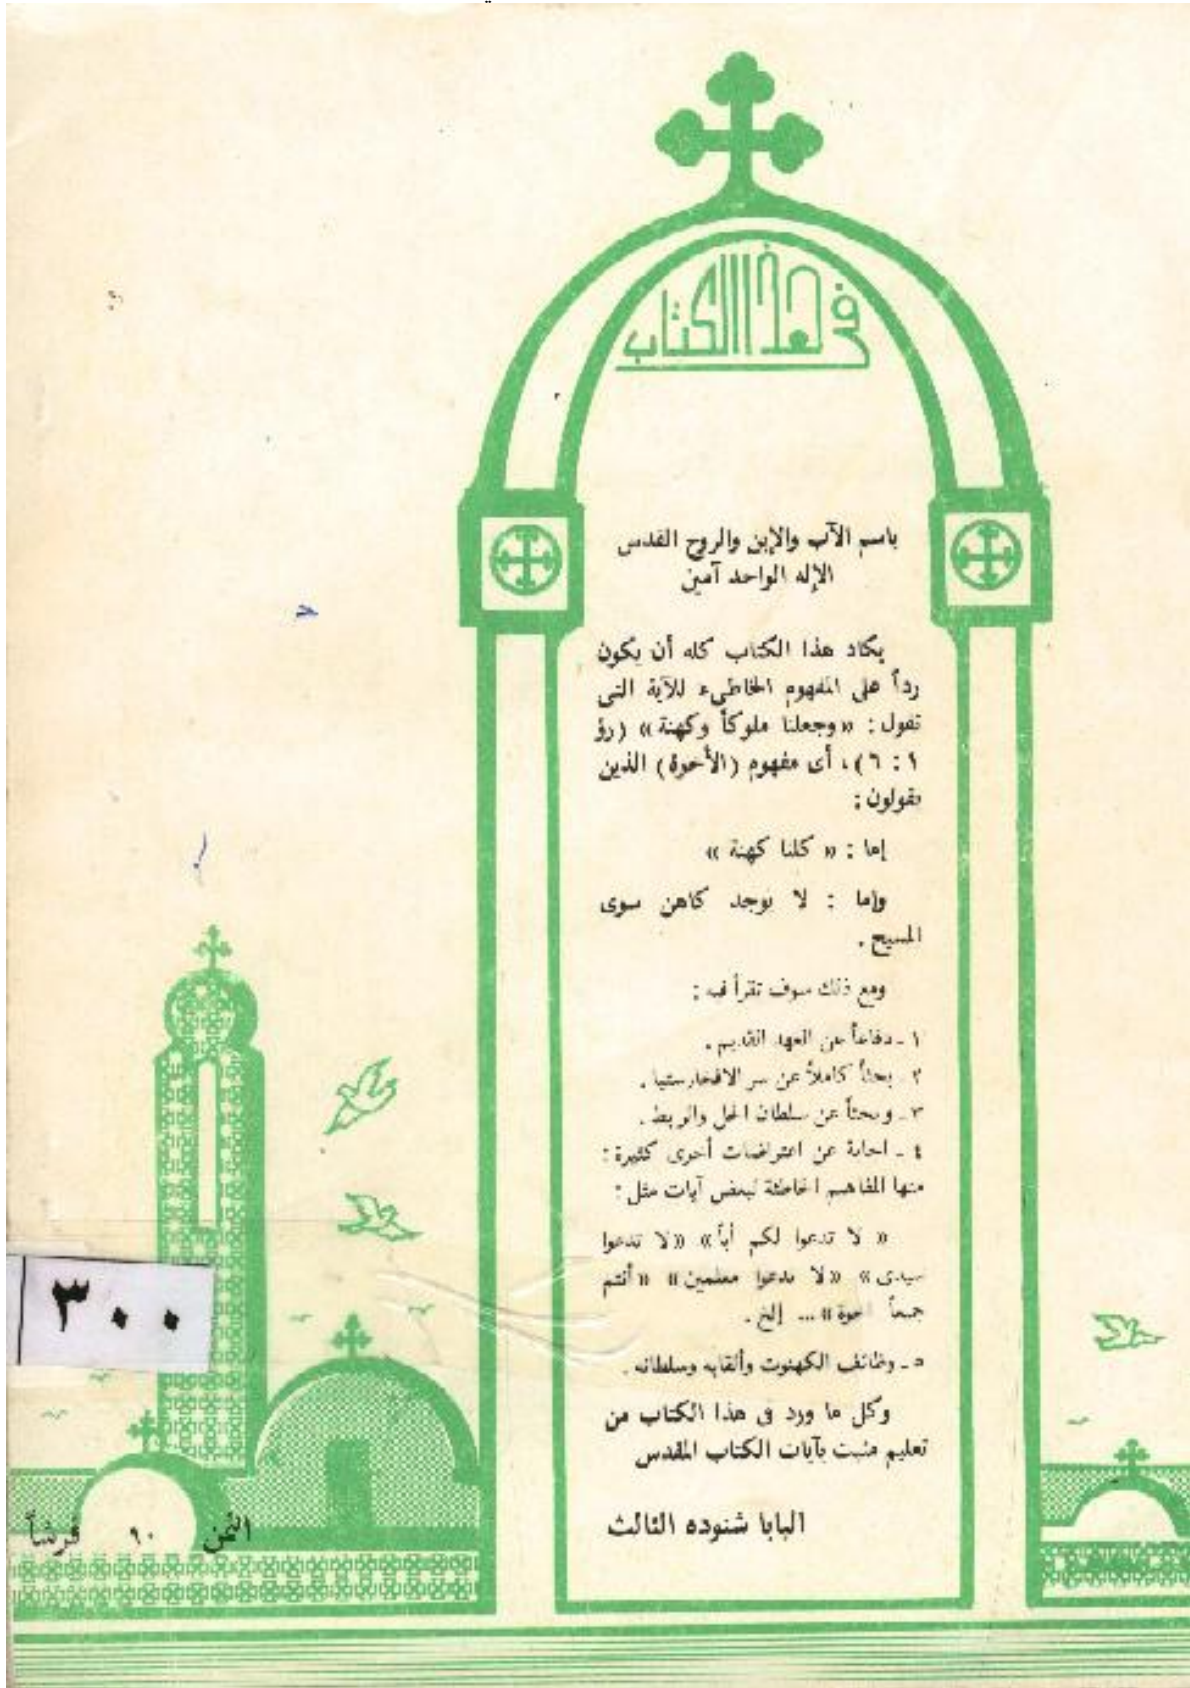 فى هذا الكتاب
باسم الآب والإبن والروح القدس
الإله الواحد آمين
يكاد هذا الكتاب كله أن يكون
رداً على المفهوم الخاطىء للآية التى
تقول : «وجعلنا ملوكاً وكهنة» (رؤ
١ : ٦)، أى مفهوم (الأخوة) الذين
يقولون :
إما : « كلنا كهنة »
وإما : لا يوجد كاهن سوى
المسيح .
ومع ذلك سوف تقرأ فيه :
١ ـ دفاعاً عن العهد القديم .
٢ ـ بحثاً كاملاً عن سر الافخارستيا .
٣ ـ وبحثاً عن سلطان الحل والربط .
٤ ـ اجابة عن اعتراضات أخرى كثيرة :
منها المفاهيم الخاطئة لبعض آيات مثل :
« لا تدعوا لكم أباً» «لا تدعوا
سيدى» «لا تدعوا معلمين» «أنتم
جميعاً اخوة» ... إلخ .
٥ ـ وظائف الكهنوت وألقابه وسلطانه .
وكل ما ورد فى هذا الكتاب من
تعليم مثبت بآيات الكتاب المقدس
البابا شنوده الثالث
٣٠٠
الثمن ٩٠ قرشاً